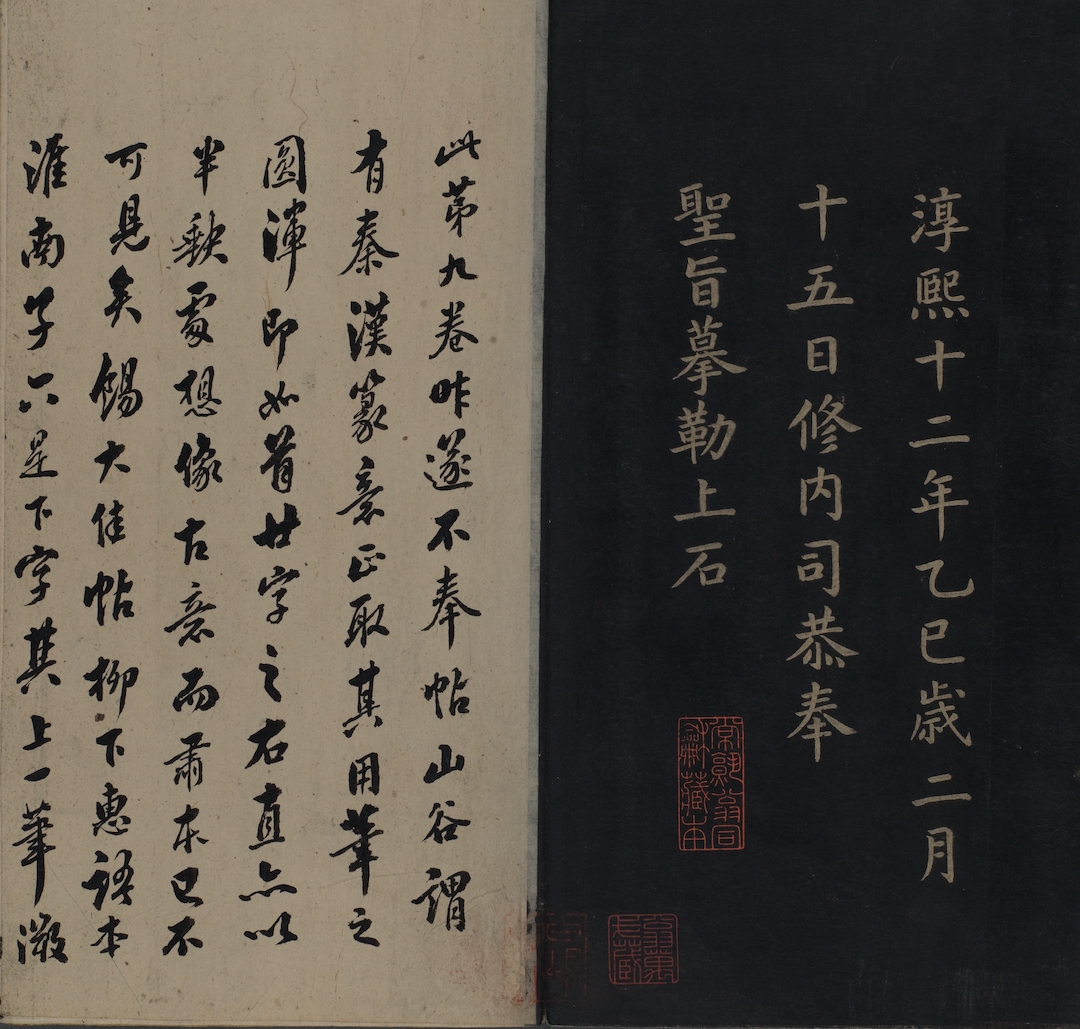 淳熙十二年乙巳歲二月
十五日修內司恭奉
聖旨摹勒上石
此第九卷昨遂不奉帖山谷謂
有秦漢篆意正取其用筆之
圓渾即如首廿字之右直亦以
半缺處想像古意而肅本已不
可見矣餳大佳帖柳下惠語本
淮南子只是下字其上一筆微